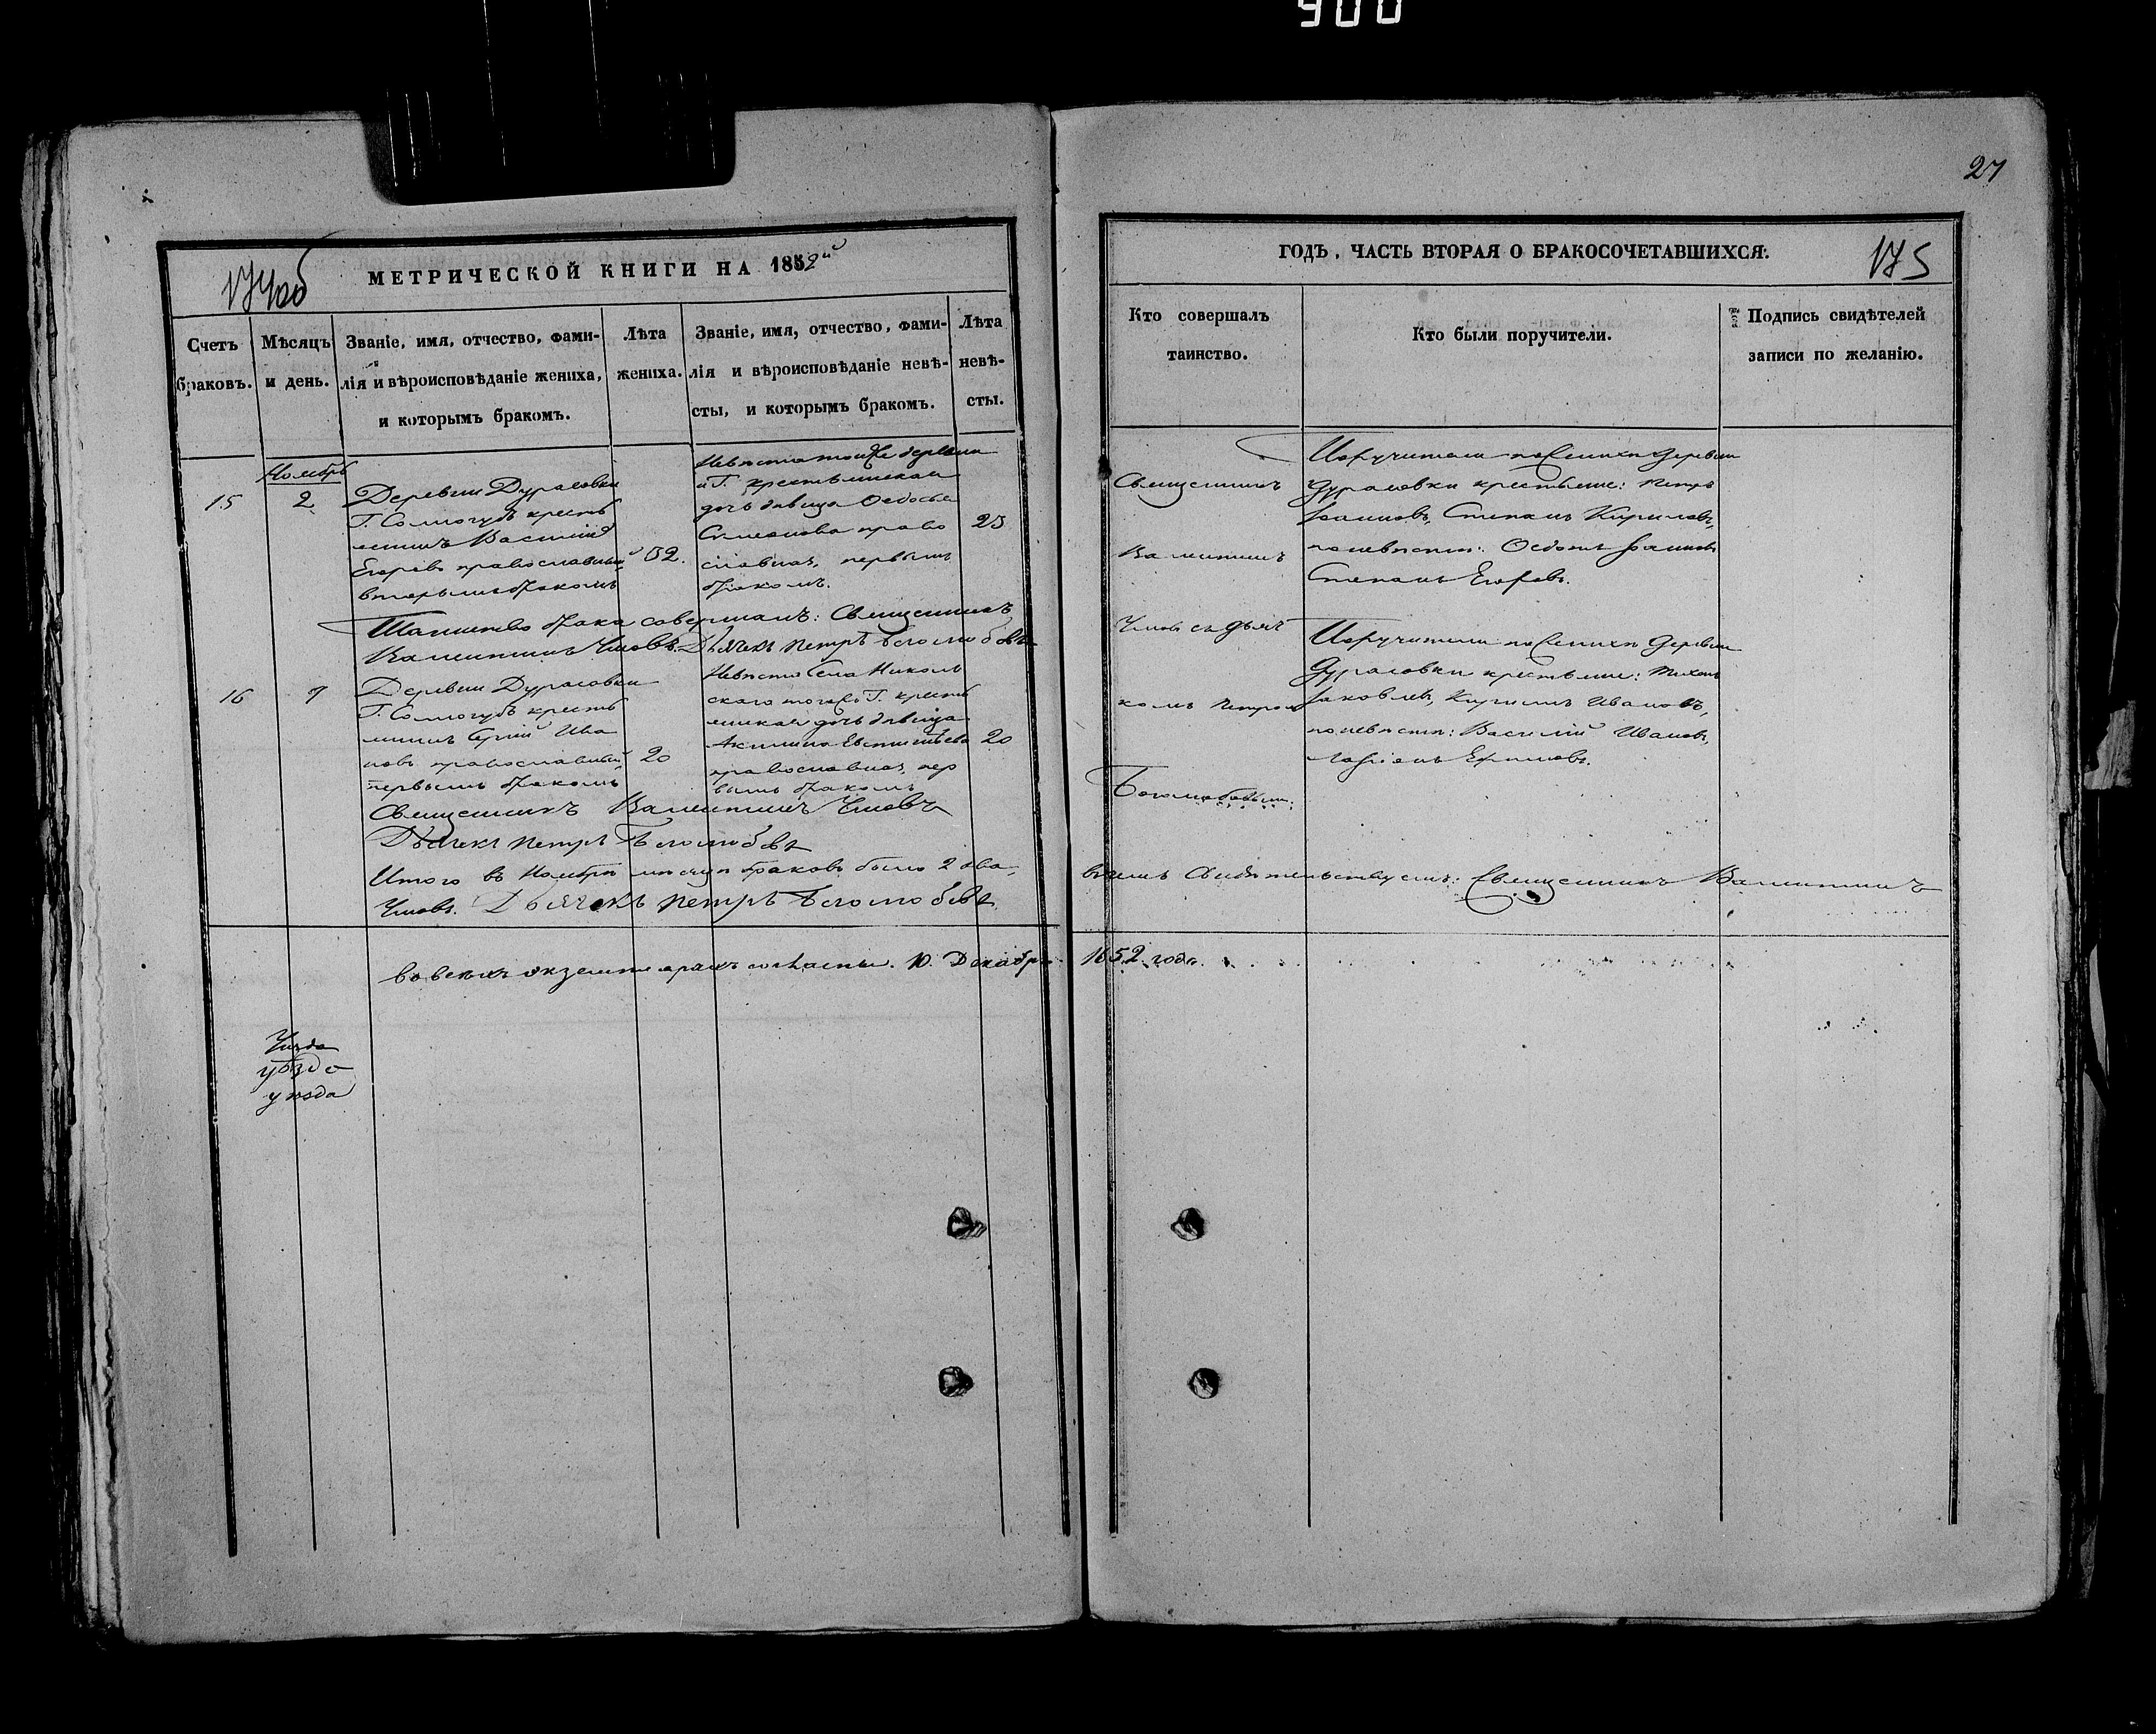 900
27
174об
МЕТРИЧЕСКОЙ КНИГИ НА 1852й
Счетъ браковъ.
Мѣсяцъ и день.
Званіе, имя, отчество, фами-
лія и вѣроисповѣданіе жениха,
и которымъ бракомъ.
Лѣта
жениха.
Званіе, имя, отчество, фами-
лія и вѣроисповѣданіе невѣ-
сты, и которымъ бракомъ.
Лѣта
невѣ-
сты.
Ноябрь
15
2
Деревни Дурасовки
Г. Сологубъ кресть
янинъ Василій
Егоровъ православный
вторымъ бракомъ
32.
Невѣста тойже деревни
и Г. крестьянская
дочь дѣвица Ѳедосья
Симеонова право
славная, первымъ
бракомъ.
23
Таинство брака совершалъ: Священникъ
Валентинъ Умовъ. Дьячекъ Петръ Боголюбовъ
16
9
Деревни Дурасовки
Г. Сологубъ кресть
янинъ Сергій Ива
новъ православный,
первымъ бракомъ
20
Невѣста Села Николь
скаго тогожъ Г. кресть
янская дочь дѣвица
Акилина
православная, пер
вымъ бракомъ
20
Священникъ Валентинъ Умовъ
Дьячекъ Петръ Боголюбовъ
Итого въ Ноябрѣ мѣсяцѣ браковъ было 2 два,
Умовъ. Дьячекъ Петръ Боголюбовъ
во всехъ экземплярахъ согласны. 10. Декабря
уѣзда
уѣзда
ГОДЪ, ЧАСТЬ ВТОРАЯ О БРАКОСОЧЕТАВШИХСЯ.
175
Кто совершалъ
таинство.
Кто были поручители.
Подпись свидѣтелей
записи по желанію.
Священникъ
Валентинъ
Умовъ съ дьяч
комъ Петромъ
Боголюбовымъ.
Поручители по женихѣ деревни
Дурасовки крестьяне: Петръ
Іоанновъ, Степанъ Кириловъ,
по невѣстѣ: Ѳедотъ Іоанновъ
Степанъ Егоровъ.
Поручители по женихѣ деревни
Дурасовки крестьяне: Тихонъ
Іаковлевъ, Кирилъ Ивановъ,
по невѣстѣ: Василій Ивановъ,
Ларіонъ Ефимовъ.
въ чемъ Свидѣтельствуемъ: Священникъ Валентинъ
1852 года.